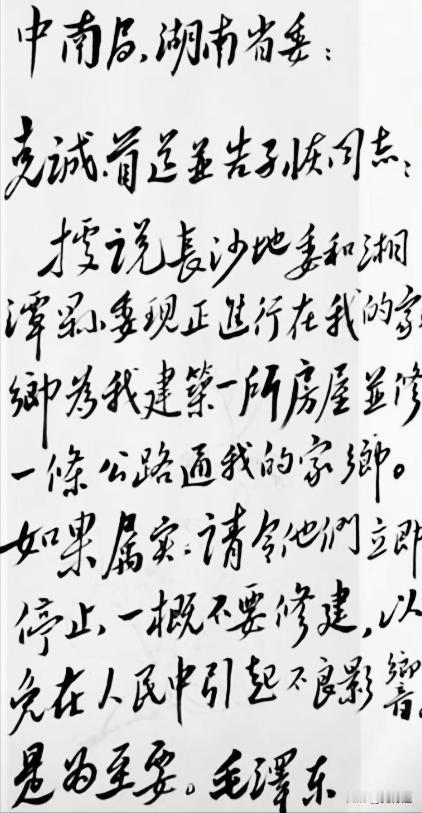 中南局、湖南省委：
克誠、首道並告子恢同志：
據说長沙地委和湘
潭縣委現正進行在我的家
鄉為我建築一所房屋並修
一條公路通我的家鄉。
如果属实，请令他們立即
停止，一概不要修建，以
免在人民中引起不良影響。
是为至要。毛澤东